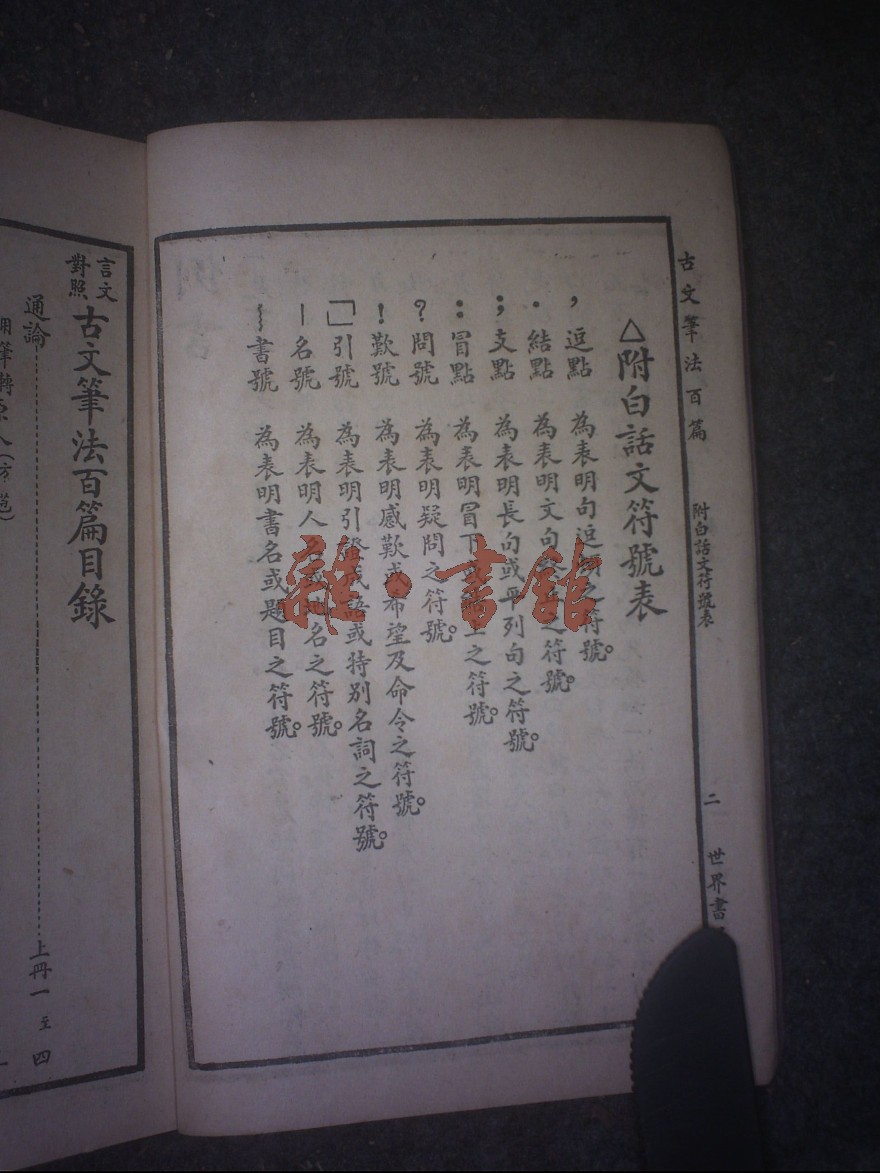 古文筆法百篇 附白話文符號表 二 世界書
△附白話文符號表
， 逗點 為表明句逗之符號。
． 結點 為表明文句之符號。
； 支點 為表明長句或平列句之符號。
： 冒點 為表明冒下上之符號。
？ 問號 為表明疑問之符號。
！ 歎號 為表明感歎或希望及命令之符號。
「」 引號 為表明引證成語或特別名詞之符號。
｜ 名號 為表明人名或地名之符號。
﹏ 書號 為表明書名或題目之符號。
言文對照 古文筆法百篇目錄
通論 上冊一至四
雜·書館